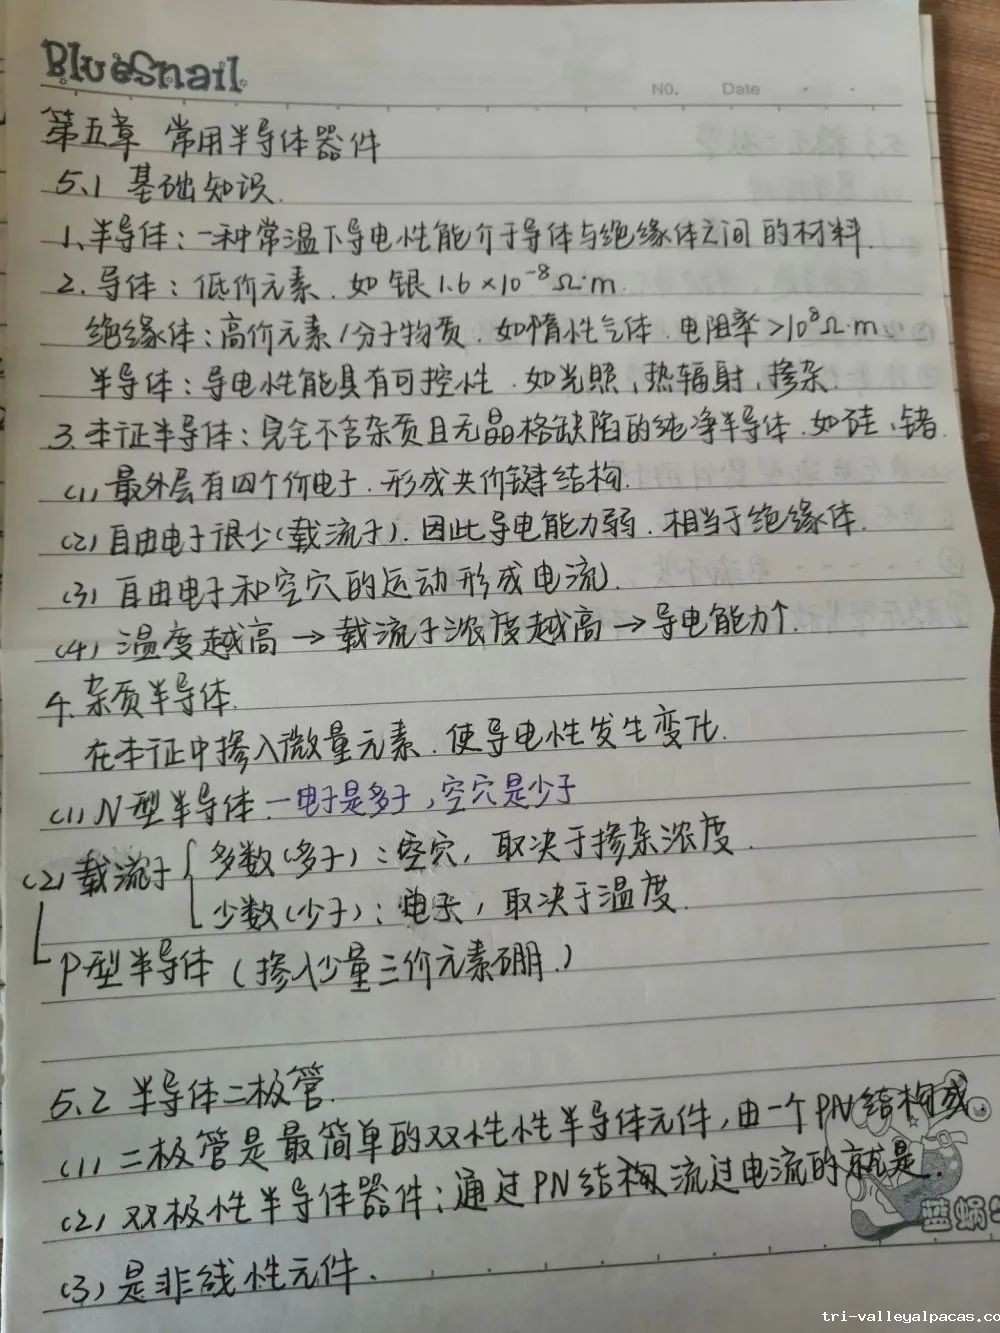 BlueSnail
No. Date
第五章 常用半导体器件
5.1 基础知识.
1、半导体：一种常温下导电性能介于导体与绝缘体之间的材料.
2. 导体：低价元素. 如银1.6×10⁻⁸Ω·m
绝缘体：高价元素/分子物质. 如惰性气体. 电阻率>10⁸Ω·m
半导体：导电性能具有可控性. 如光照,热辐射,掺杂.
3.本证半导体：完全不含杂质且无晶格缺陷的纯净半导体.如硅、锗.
(1)最外层有四个价电子.形成共价键结构.
(2)自由电子很少(载流子).因此导电能力弱.相当于绝缘体.
(3)自由电子和空穴的运动形成电流.
(4)温度越高→载流子浓度越高→导电能力↑.
4.杂质半导体.
在本证中掺入微量元素.使导电性发生变化.
(1)N型半导体—电子是多子,空穴是少子
(2)载流子{多数(多子)：空穴，取决于掺杂浓度.
少数(少子)：电子，取决于温度.
P型半导体(掺入少量三价元素硼.)
5.2 半导体二极管.
(1)二极管是最简单的双性性半导体元件,由一个PN结构成.
(2)双极性半导体器件：通过PN结构流过电流的就是.
(3)是非线性元件.
蓝蜗
tri-valleyalpacas.com